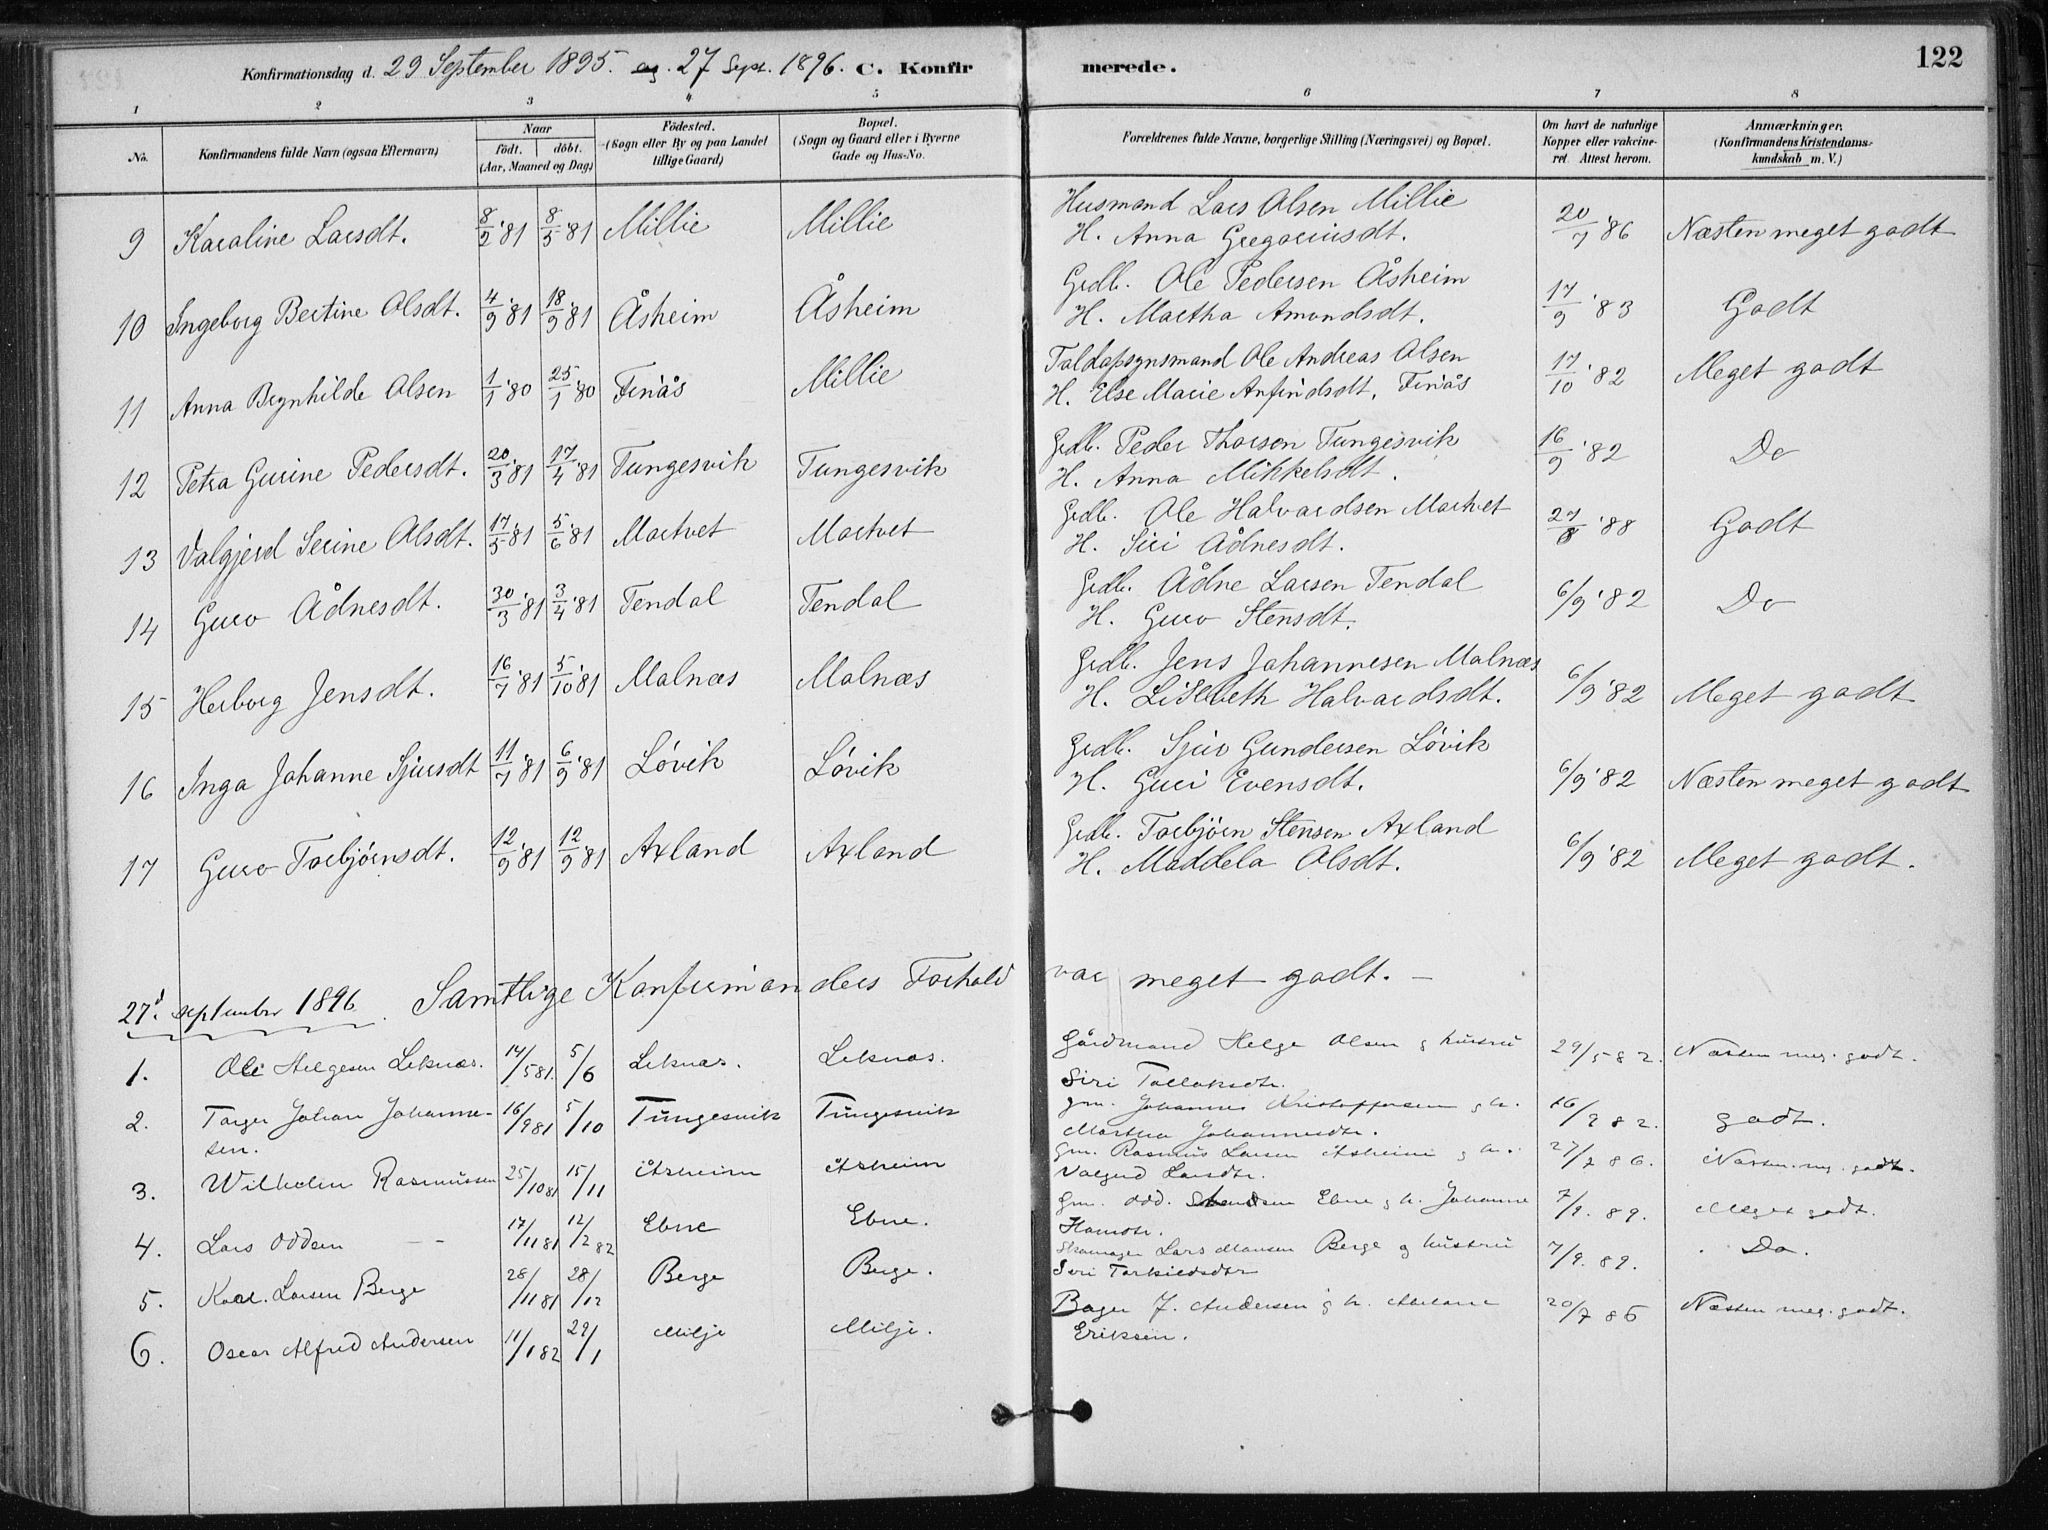 122
Konfirmationsdag d. 29 September 1895. og. 27 Sept. 1896. C. Konfirmerede.
1 2 3 4 5 6 7 8
No. Konfirmandens fulde Navn (ogsaa Efternavn) Naar Födt. döbt. (Aar, Maaned og Dag) Födested. (Sogn eller By og paa Landet tillige Gaard) Bopæl. (Sogn og Gaard eller i Byerne Gade og Hus-No. Forældrenes fulde Navne, borgerlige Stilling (Næringsvei) og Bopæl. Om havt de naturlige Kopper eller vakcineret. Attest herom. Anmærkninger. (Konfirmandens Kristendomskundskab m. V.)
9 Karoline Larsdt. 8/2 '81 8/5 '81 Millie Millie Husmand Lars Olsen Millie 20/7 '86 Næsten meget godt
H. Anna Gregoriusdt.
10 Ingeborg Bertine Olsdt. 4/9 '81 18/9 '81 Åsheim Åsheim Grdb. Ole Pedersen Åsheim 17/9 '83 Godt
H. Martha Amundsdt.
11 Anna Brynhilde Olsen 1/1 '80 25/1 '80 Finås Millie Toldopsynsmand Ole Andreas Olsen 17/10 '82 Meget godt
H. Else Marie Anfindsdt, Finås
12 Petra Gurine Pedersdt. 20/3 '81 17/4 '81 Tungesvik Tungesvik Grdb. Peder Thorsen Tungesvik 16/9 '82 Do
H. Anna Mikkelsdt.
13 Valgjerd Serine Olsdt. 17/5 '81 5/6 '81 Mortvet Mortvet Grdb. Ole Halvardsen Mortvet 27/8 '88 Godt
H. Siri Ådnesdt.
14 Guro Ådnesdt. 30/3 '81 3/4 '81 Tendal Tendal Grdb. Ådne Larsen Tendal 6/9 '82 Do
H. Guro Stensdt.
15 Herborg Jensdt. 16/7 '81 5/10 '81 Malnæs Malnæs Grdb. Jens Johannesen Malnæs 6/9 '82 Meget godt
H. Lisbeth Halvardsdt.
16 Inga Johanne Sjursdt 11/7 '81 6/9 '81 Løvik Løvik Grdb. Sjur Gundersen Løvik 6/9 '82 Næsten meget godt
H. Guri Evensdt.
17 Guro Torbjørnsdt. 12/9 '81 12/9 '81 Axland Axland Grdb. Torbjørn Stensen Axland 6/9 '82 Meget godt.
H. Maddela Olsdt.
27d. september 1896. Samtlige Konfirmanders Forhold var meget godt. –
1. Ole Helgesen Leknæs. 14/5 81. 5/6 Leknæs. Leknæs. Gårdmand Helge Olsen g hustru 29/5 82. Næsten meg. godt.
Siri Tollaksdtr.
2. Torger Johan Johannesen. 16/9 81 5/10 Tungesvik Tungesvik gm. Johannes Kristoffersen g h. 16/9 82. godt.
Martha Johannesdtr.
3. Wilhelm Rasmussen 25/10 81 15/11 Åsheim Åsheim Gm. Rasmus Larsen Åsheim g h. 27/7 86. Næsten. meg. godt.
Valgerd Larsdtr.
4. Lars Oddsen – – 17/11 81 12/2 82 Ebne Ebne. Gm. Odd. Ebne g h. Johanne 7/9. 89. Meget godt.
5. Karl. Larsen Berge 28/11 81 28/12 Berge Berge. Skomager Lars Monsen Berge g hustru 7/9. 89. Do.
Siri Torkildsdtr
6. Oscar Alfred Andersen 11/1 82 29/1 Milje Milje. Bager J. Andersen g h. 20/7 86 Næsten meg. godt.
Eriksen.